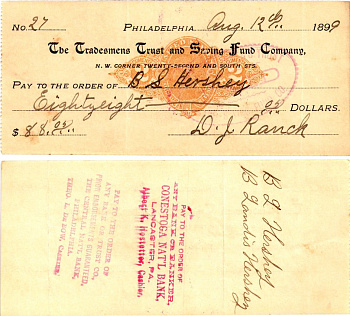 No. 27 Philadelphia Aug. 12th 1899
The Tradesmens Trust and Saving Fund Company,
N. W. CORNER TWENTY-SECOND AND SOUTH STS.
PAY TO THE ORDER OF B S Hershey
Eightyeight 00/ DOLLARS.
$ 88.00/ D. J. Ranck
PAY TO THE ORDER OF
ANY BANK OR BANKER.
CONESTOGA NAT'L BANK,
LANCASTER, PA.
Cashier.
PAY TO THE ORDER OF
ANY BANK OR TRUST CO.
PREV. ENDORSEMENTS GUARANTEED,
THE CENTRAL NAT'L BANK,
PHILADELPHIA
CASHIER.
B S Hershey
B Landis Hershey